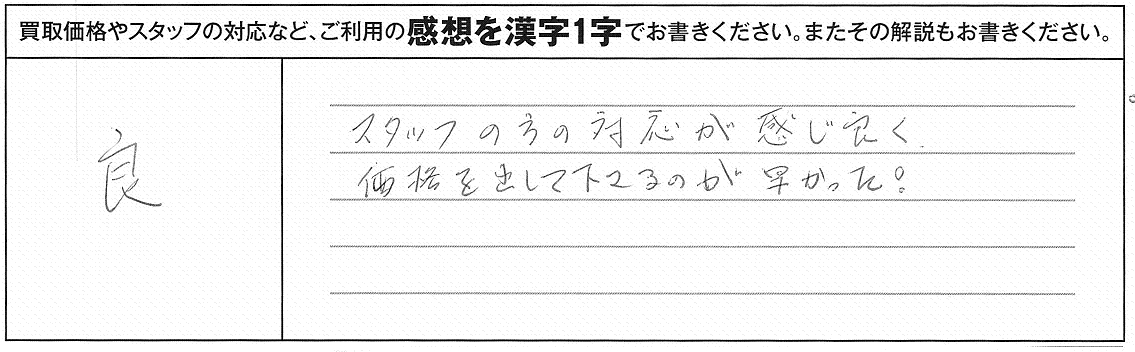 買取価格やスタッフの対応など、ご利用の感想を漢字1字でお書きください。またその解説もお書きください。
良
スタッフの方の対応が感じ良く
価格を出して下さるのが早かった。